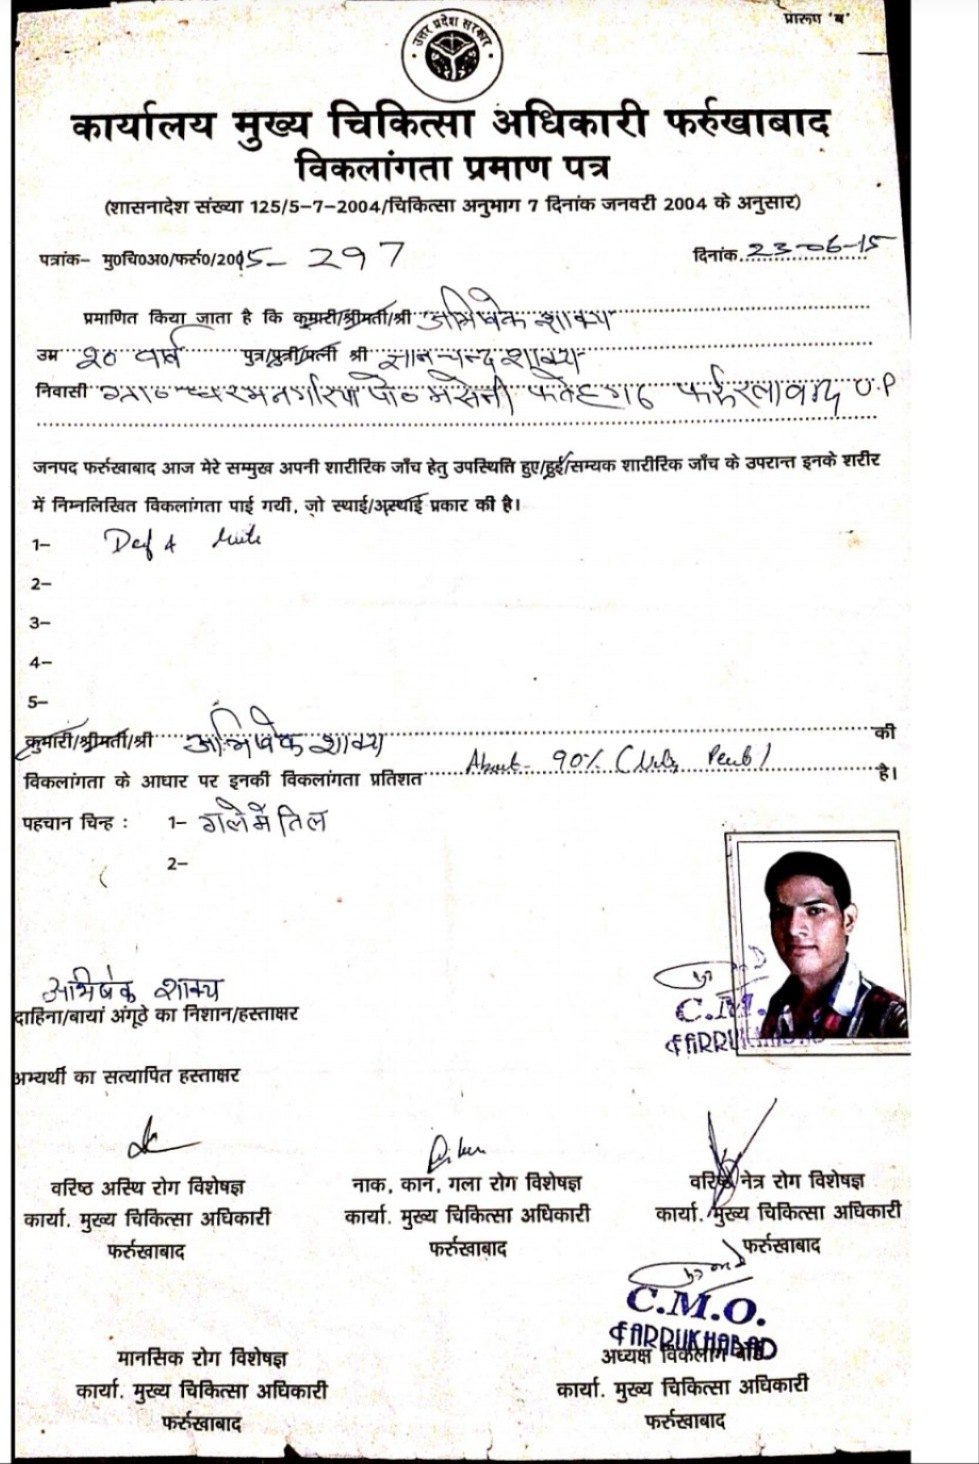 प्रारूप 'ब'
उत्तर प्रदेश सरकार
कार्यालय मुख्य चिकित्सा अधिकारी फर्रुखाबाद
विकलांगता प्रमाण पत्र
(शासनादेश संख्या 125/5-7-2004/चिकित्सा अनुभाग 7 दिनांक जनवरी 2004 के अनुसार)
पत्रांक- मु0चि0अ0/फर्रु0/2015- 297 दिनांक. 23-06-15
प्रमाणित किया जाता है कि कुमारी/श्रीमती/श्री अभिषेक शाक्य
उम्र 20 वर्ष पुत्र/पुत्री/पत्नी श्री ज्ञानचन्द शाक्य
निवासी ग्रा० पो० मसेनी फतेहगढ़ U.P
जनपद फर्रुखाबाद आज मेरे सम्मुख अपनी शारीरिक जाँच हेतु उपस्थिति हुए/हुई/सम्यक शारीरिक जाँच के उपरान्त इनके शरीर
में निम्नलिखित विकलांगता पाई गयी, जो स्थाई/अस्थाई प्रकार की है।
1- Def & Mute
2-
3-
4-
5-
कुमारी/श्रीमती/श्री अभिषेक शाक्य की
विकलांगता के आधार पर इनकी विकलांगता प्रतिशत About 90% है।
पहचान चिन्ह : 1- गले में तिल
2-
अभिषेक शाक्य
दाहिना/बायां अंगूठे का निशान/हस्ताक्षर
C.M.
FARRU
अभ्यर्थी का सत्यापित हस्ताक्षर
वरिष्ठ अस्थि रोग विशेषज्ञ नाक, कान, गला रोग विशेषज्ञ वरिष्ठ नेत्र रोग विशेषज्ञ
कार्या. मुख्य चिकित्सा अधिकारी कार्या. मुख्य चिकित्सा अधिकारी कार्या. मुख्य चिकित्सा अधिकारी
फर्रुखाबाद फर्रुखाबाद फर्रुखाबाद
C.M.O.
FARRUKHABAD
मानसिक रोग विशेषज्ञ अध्यक्ष विकलांग बोर्ड
कार्या. मुख्य चिकित्सा अधिकारी कार्या. मुख्य चिकित्सा अधिकारी
फर्रुखाबाद फर्रुखाबाद